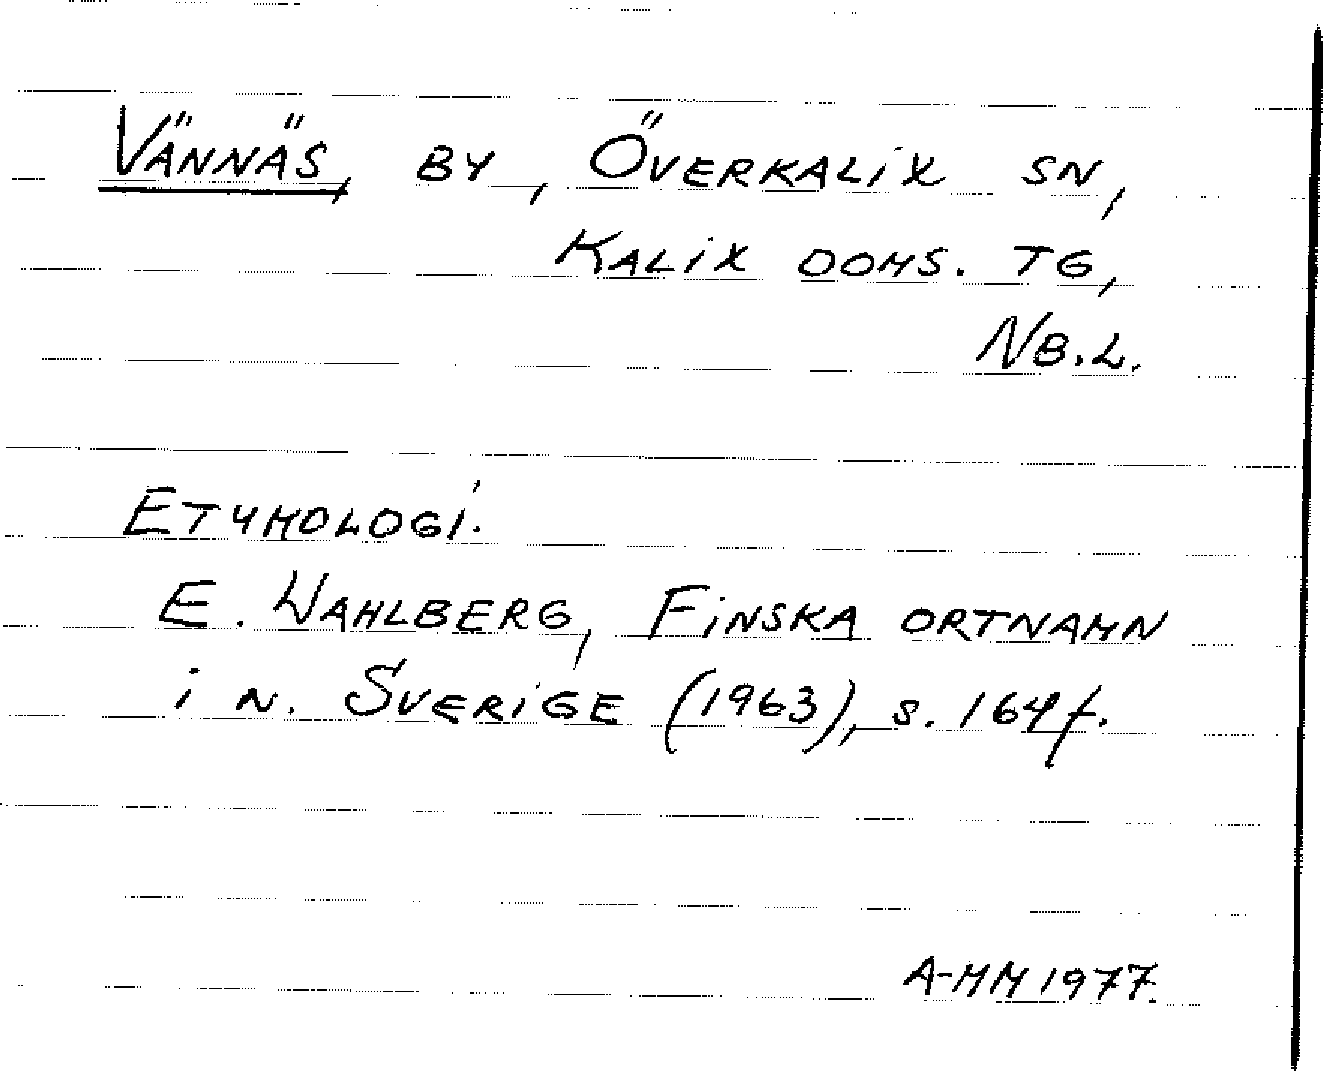 VÄNNÄS, BY, ÖVERKALIX SN,
KALIX DOMS. TG,
NB.L.
ETYMOLOGI.
E. WAHLBERG, FINSKA ORTNAMN
I N. SVERIGE (1963), S. 164 f.
A-MM 1977.